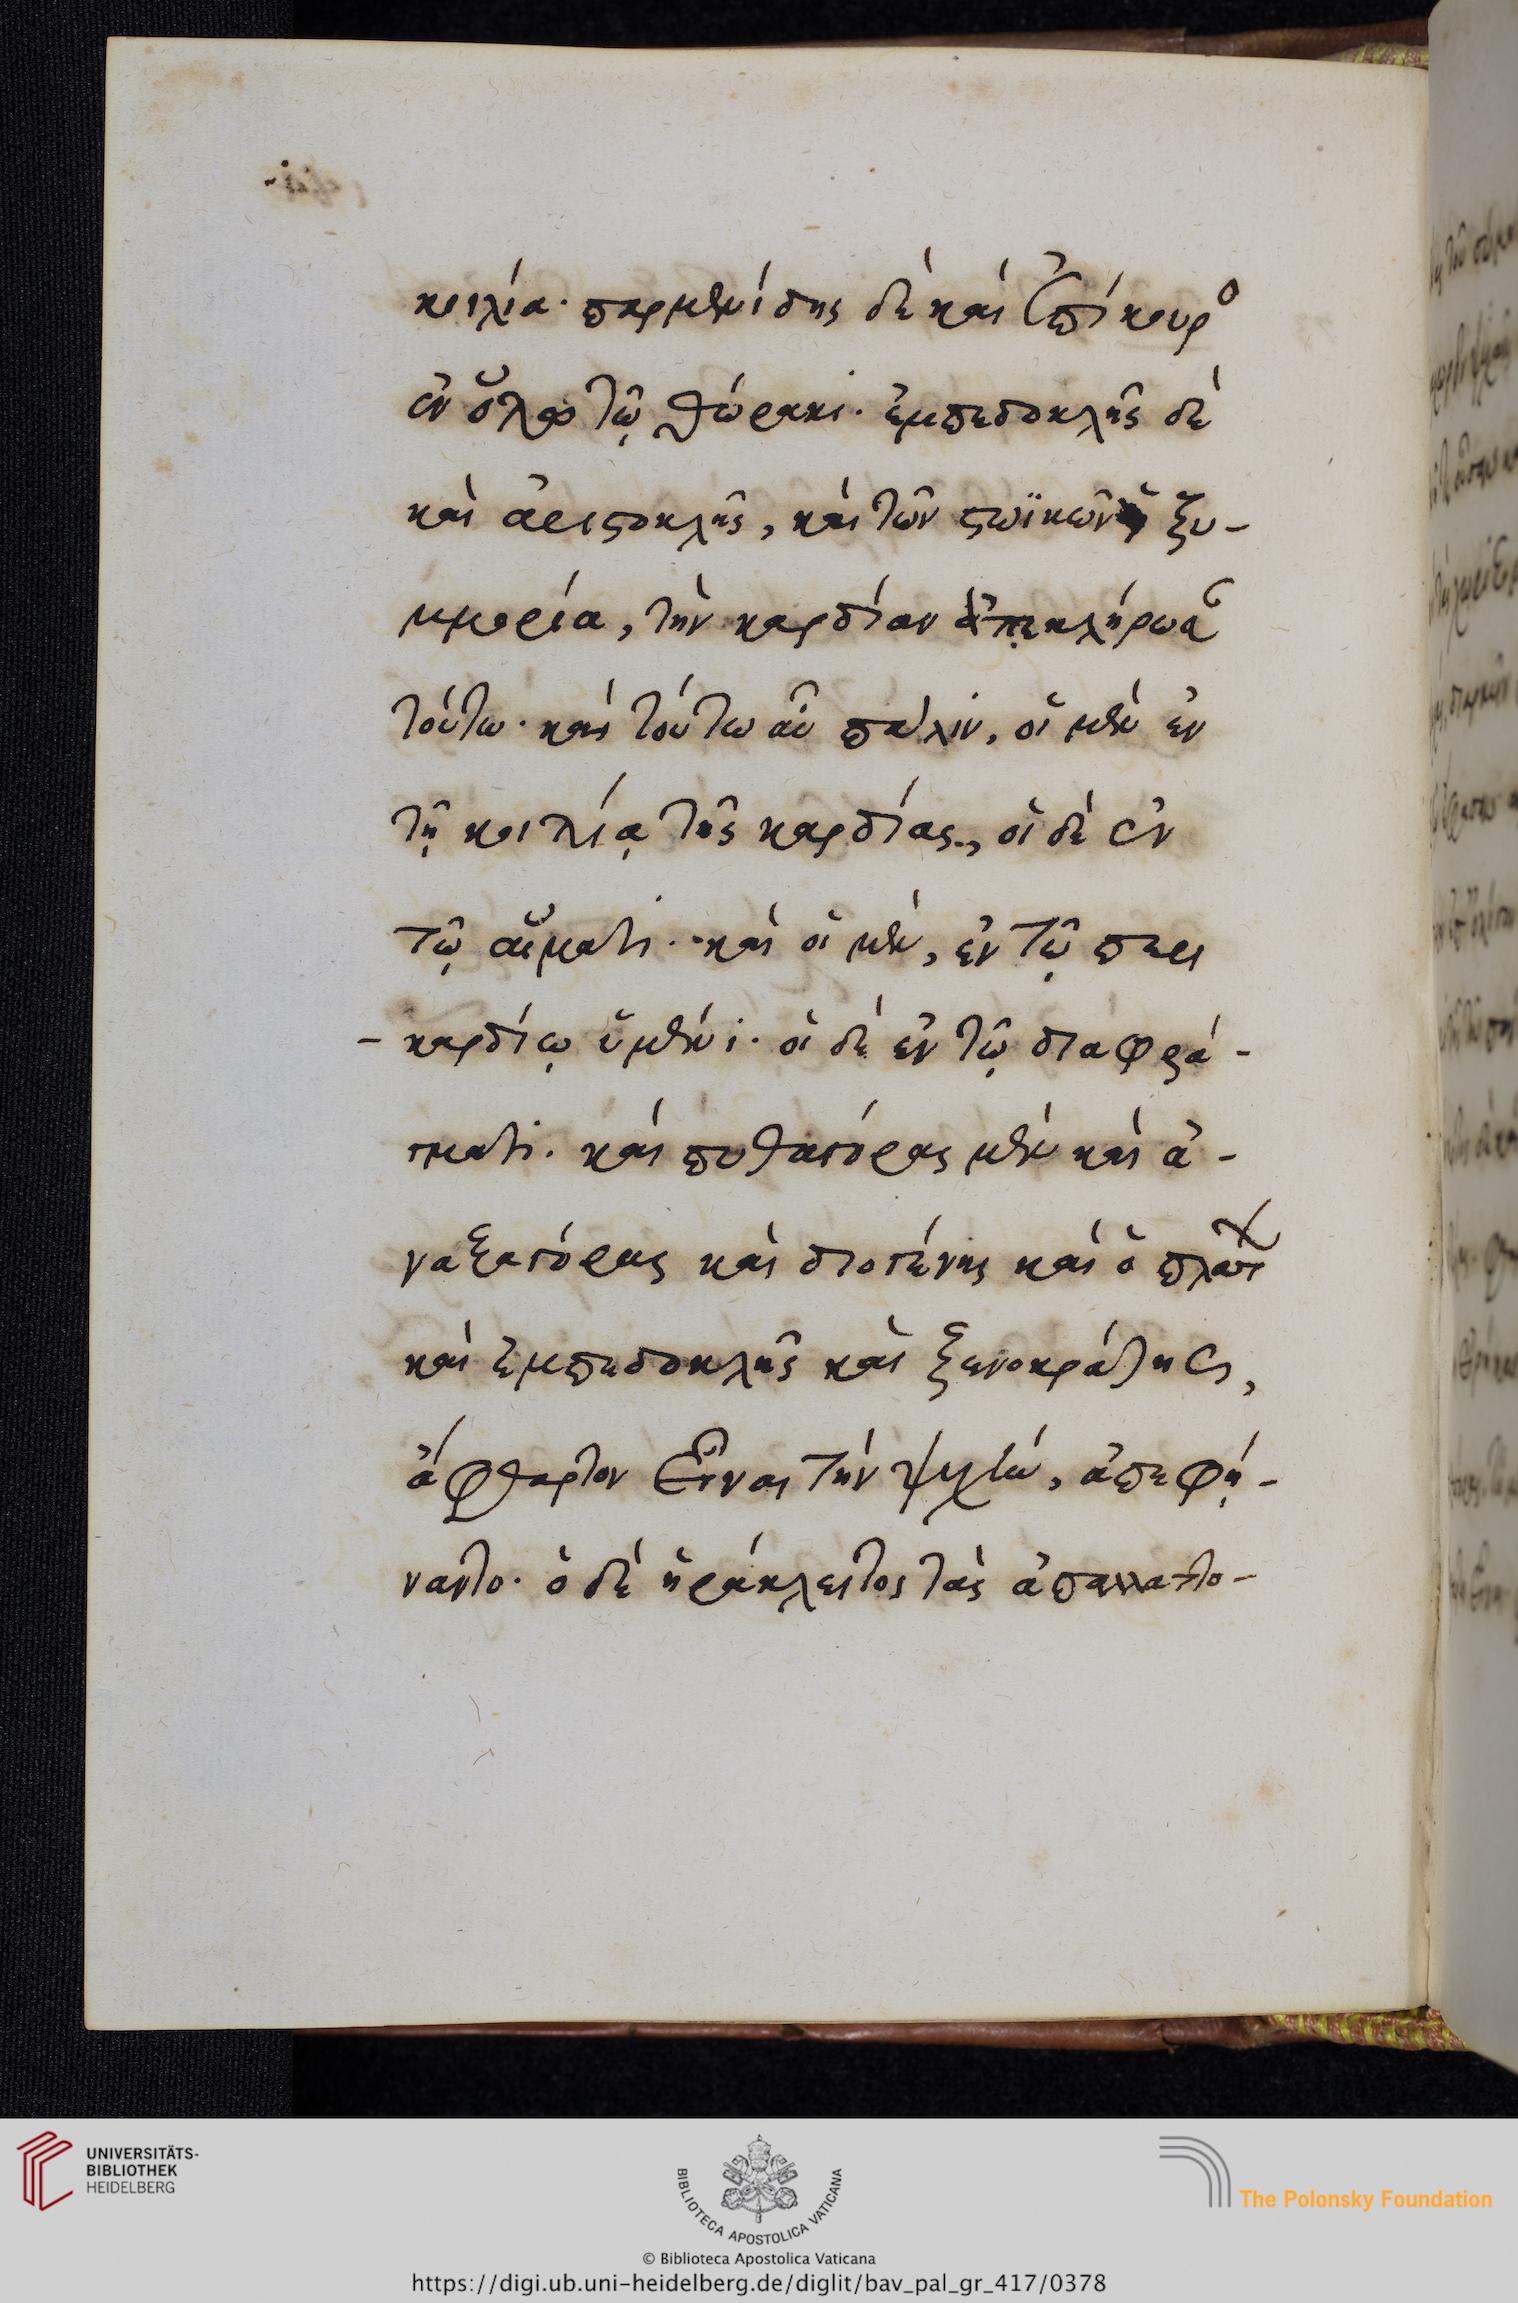 κοιλία· παρμενίδης δὲ καὶ Ἐπίκουρο
ἐν ὅλῳ τῷ θώρακι. ἐμπεδοκλῆς δὲ
καὶ ἀριστοκλῆς, καὶ τῶν στωϊκῶν ἡ ξυ-
μμορία, τὴν καρδίαν ἀπεκλήρωσαν
τούτω· καὶ τούτω αὖ πάλιν, οἱ μὲν ἐν
τῇ κοιλίᾳ τῆς καρδίας, οἱ δὲ ἐν
τῷ αἵματι. καὶ οἱ μὲν, ἐν τῷ περι
-καρδίῳ ὑμένι· οἱ δὲ ἐν τῷ διαφρά-
γματι. καὶ πυθαγόρας μὲν καὶ ἀ-
ναξαγόρας καὶ διογένης καὶ ὁ πλάτων
καὶ ἐμπεδοκλῆς καὶ ξενοκράτης,
ἄφθαρτον Εἶναι τὴν ψυχὴν, ἀπεφῄ-
ναντο. ὁ δὲ ἡράκλειτος τὰς ἀπαλλαττο-
UNIVERSITÄTS-
BIBLIOTHEK
HEIDELBERG
BIBLIOTECA APOSTOLICA VATICANA
The Polonsky Foundation
© Biblioteca Apostolica Vaticana
https://digi.ub.uni-heidelberg.de/diglit/bav_pal_gr_417/0378